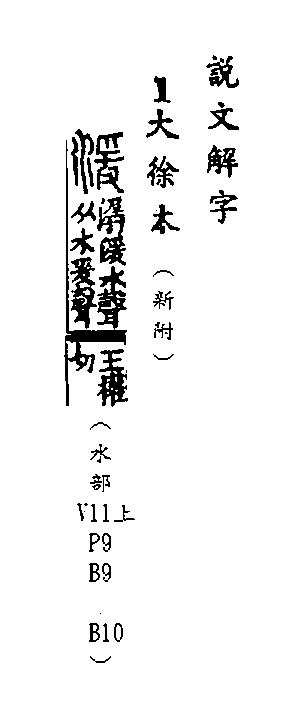 說文解字
1大徐本（新附）
湲
潺湲水聲
从水爰聲
王權
切
（水部
V11上
P9
B9
B10
）